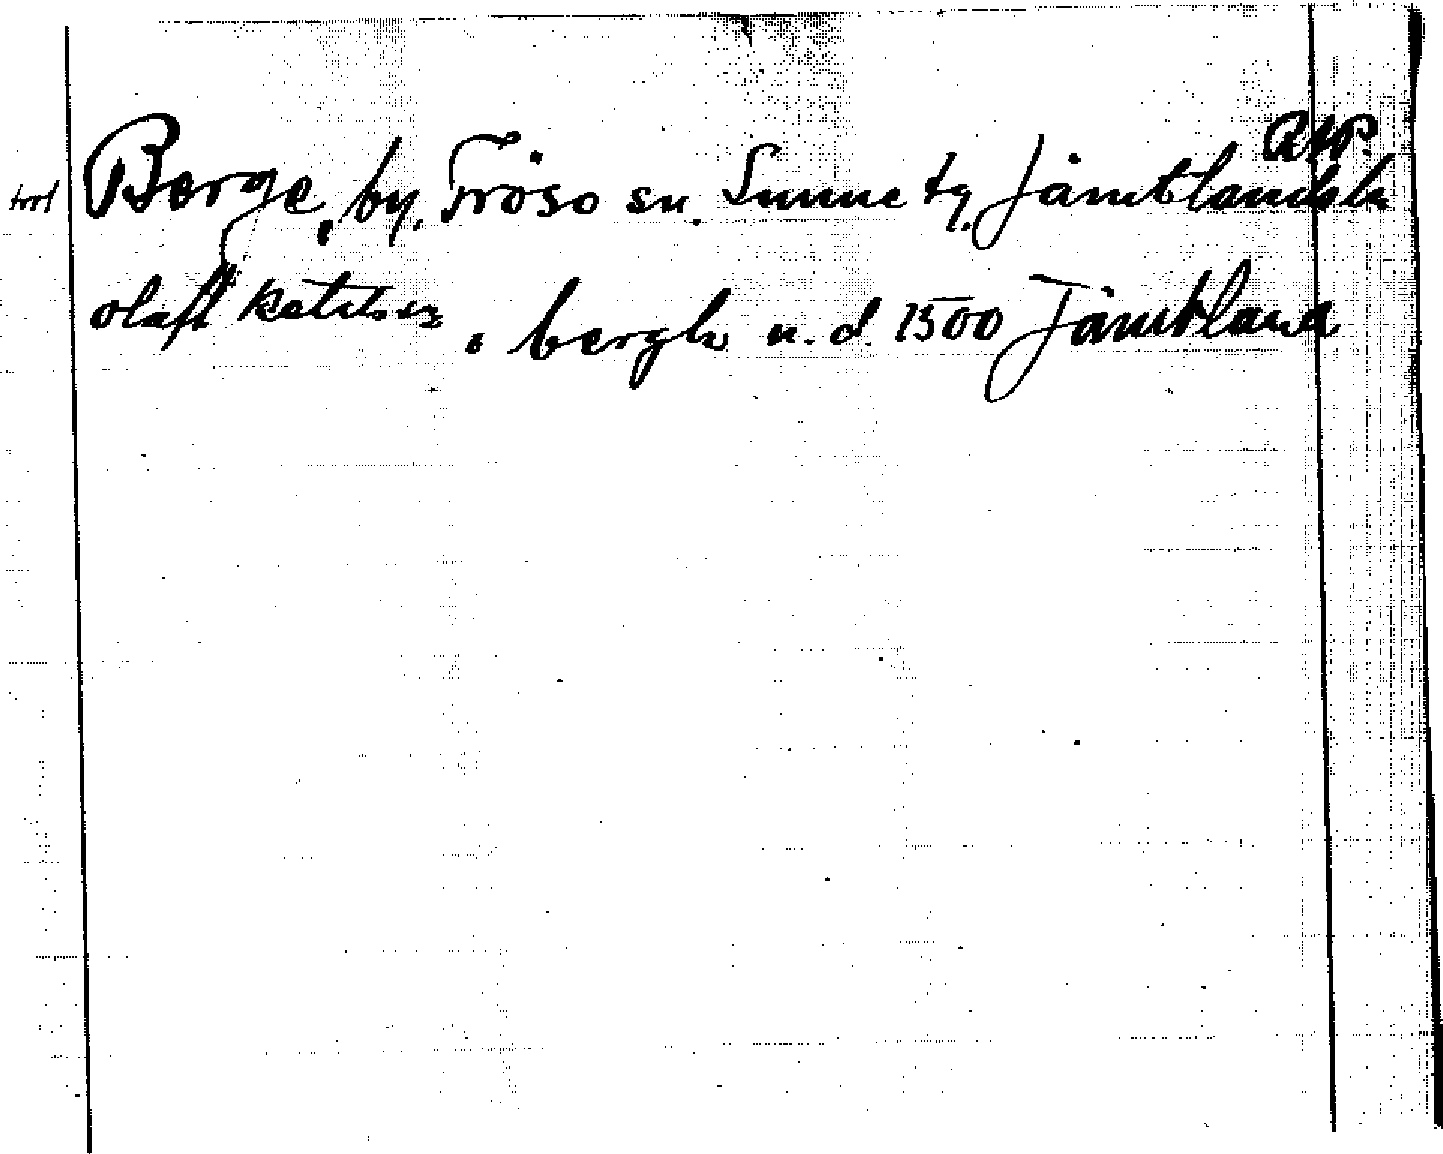 RAP.
trol Berge, by. Frösö sn. Sunne tg. Jämtlands län
olaff ketilsen i bergh u. d. 1500 Jämtland